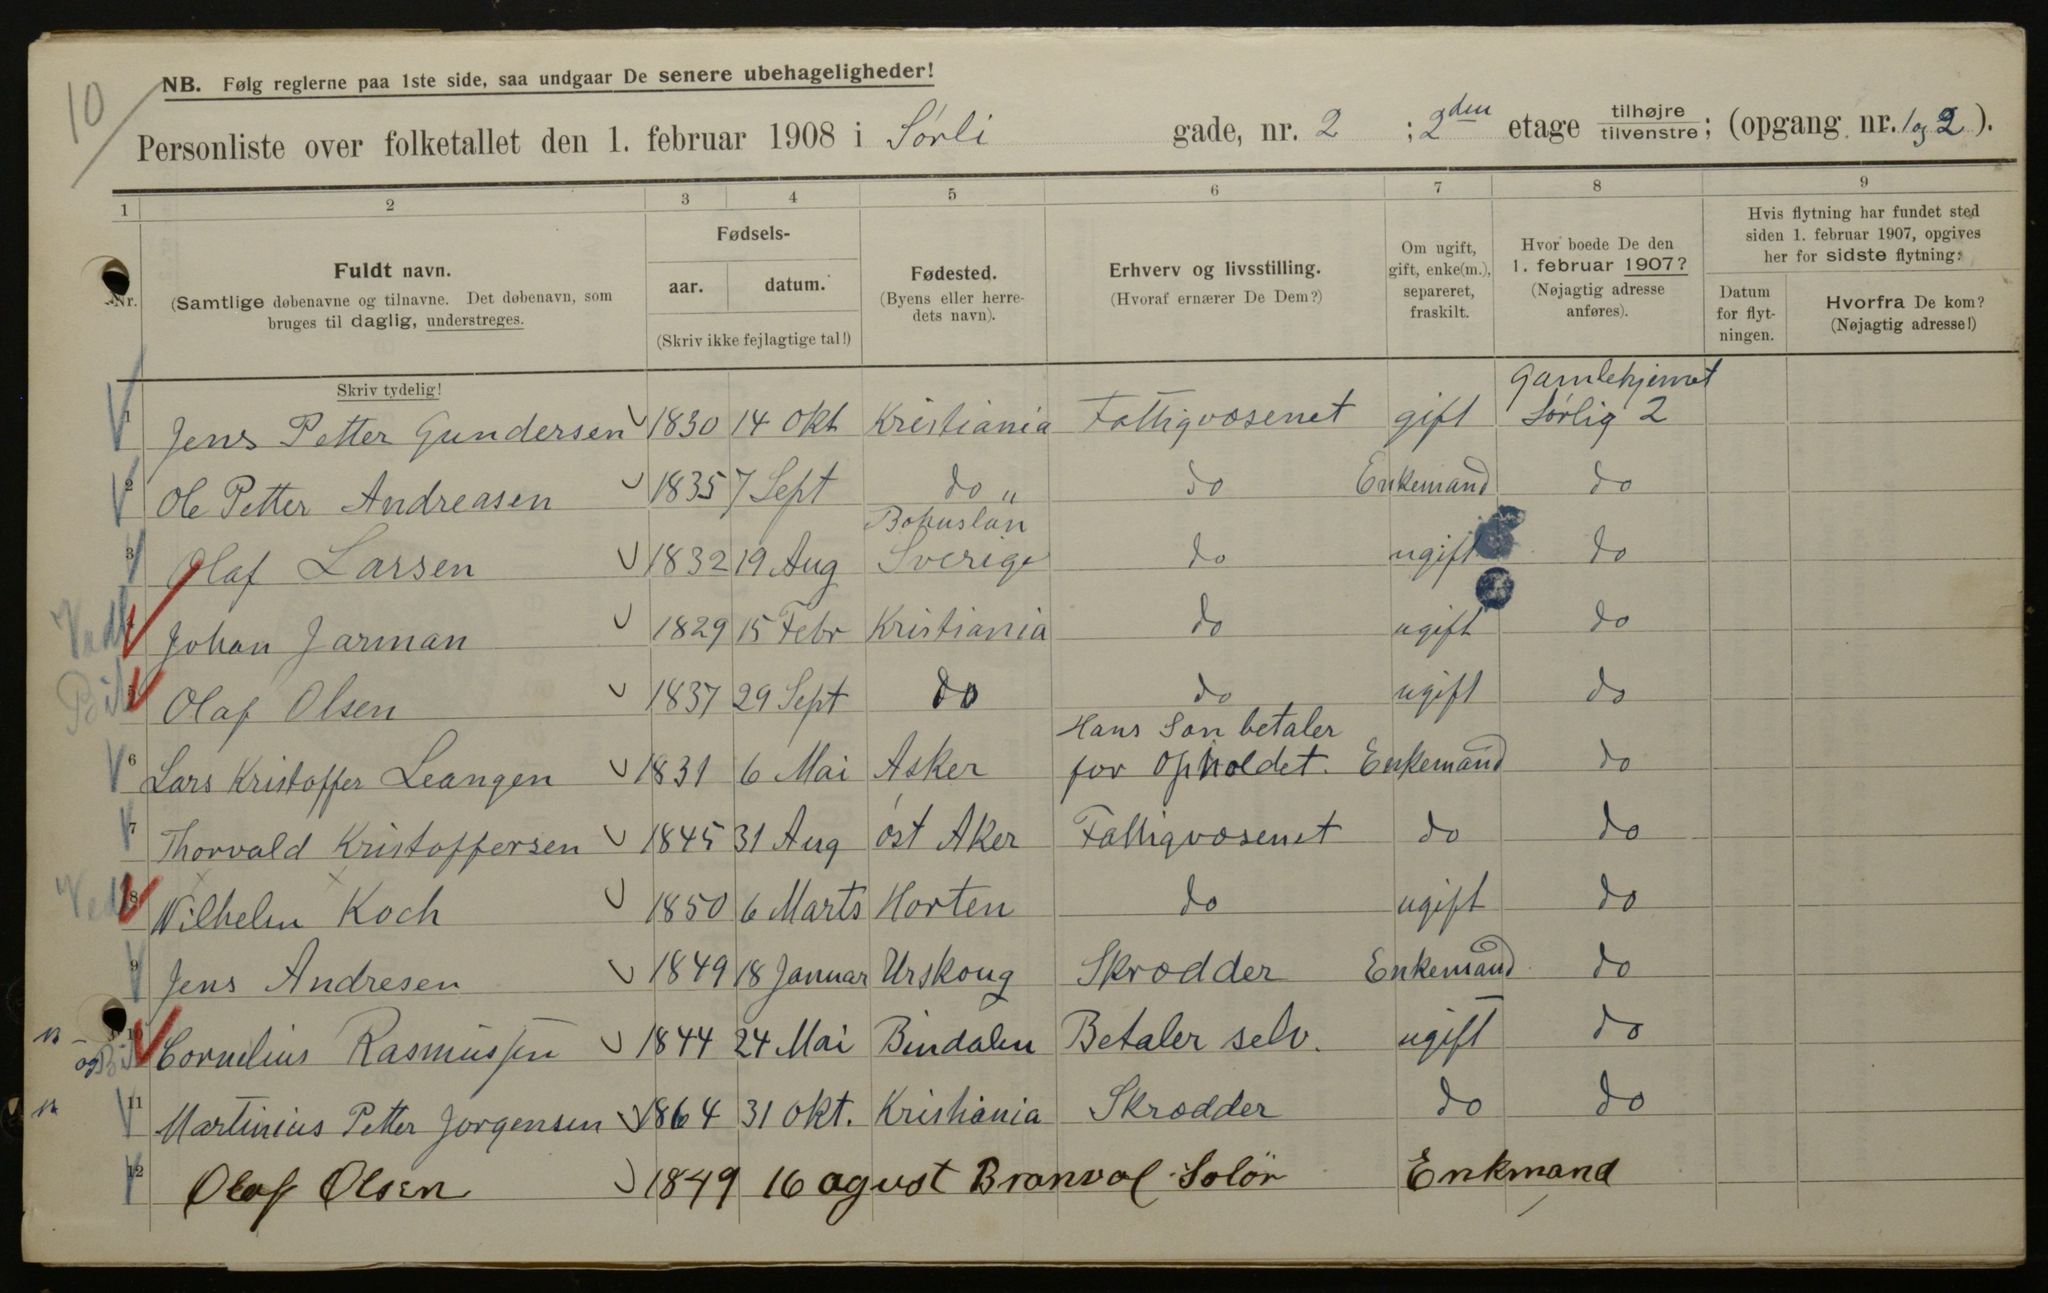 10
NB. Følg reglerne paa 1ste side, saa undgaar De senere ubehageligheder!
Personliste over folketallet den 1. februar 1908 i Sørli gade, nr. 2 ; 2den etage tilhøjre / tilvenstre; (opgang nr. 1 og 2).
1 2 3 4 5 6 7 8 9
Nr. Fuldt navn. (Samtlige døbenavne og tilnavne. Det døbenavn, som bruges til daglig, understreges. Skriv tydelig!
Fødsels- aar. datum. (Skriv ikke fejlagtige tal!)
Fødested. (Byens eller herredets navn).
Erhverv og livsstilling. (Hvoraf ernærer De Dem?)
Om ugift, gift, enke(m.), separeret, fraskilt.
Hvor boede De den 1. februar 1907? (Nøjagtig adresse anføres).
Hvis flytning har fundet sted siden 1. februar 1907, opgives her for sidste flytning:
Datum for flytningen. Hvorfra De kom? (Nøjagtig adresse!)
1 Jens Petter Gundersen 1830 14 Okt Kristiania Fattigvæsenet gift Gamlehjemet Sørlig 2
2 Ole Petter Andreasen 1835 7 Sept do " do Enkemand do
3 Olaf Larsen 1832 19 Aug Bohuslän Sverige do ugift do
4 Johan Jarman 1829 15 Febr Kristiania do ugift do
5 Olaf Olsen 1837 29 Sept do do ugift do
6 Lars Kristoffer Leangen 1831 6 Mai Asker Hans Søn betaler for Opholdet. Enkemand do
7 Thorvald Kristoffersen 1845 31 Aug øst Aker Fattigvæsenet do do
8 Wilhelm Koch 1850 6 Marts Horten do ugift do
9 Jens Andresen 1849 18 Januar Urskoug Skrædder Enkemand do
10 Cornelius Rasmussen 1844 24 Mai Bindalen Betaler selv. ugift do
11 Martinius Petter Jørgensen 1864 31 Okt. Kristiania Skrædder do do
12 Olaf Olsen 1849 16 agust Branvol Solör Enkmand